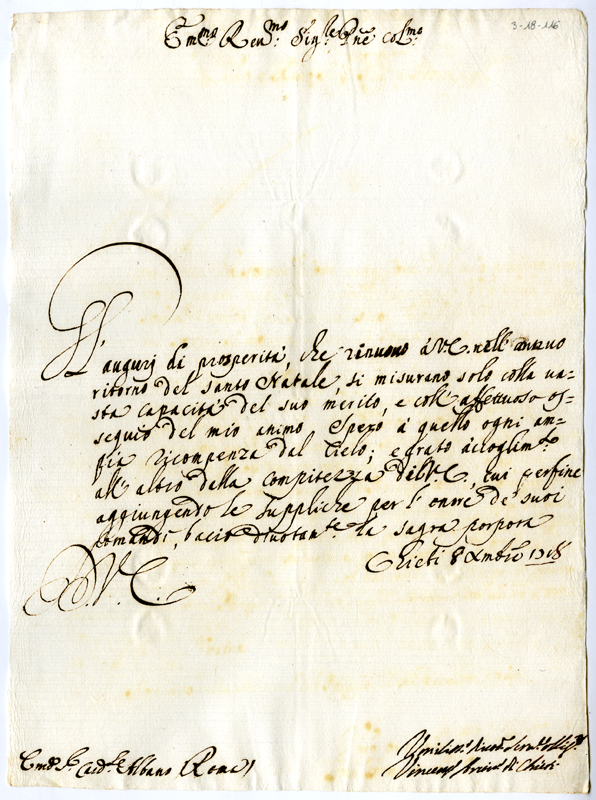 3-18-116
Em.mo Reu.mo Sig.re P.ne Col.mo
Gl'augurj di prosperità, che rinuouo à V.E. nell'annuo
ritorno del santo Natale, si misurano solo colla ua=
sta capacità del suo merito, e coll'affettuoso os=
sequio del mio animo. Spero à quello ogni am=
pia ricompenza dal Cielo; e grato accoglim.to
all'altro dalla compitezza dell'V.E., cui perfine
aggiungendo le suppliche per l'onore de suoi
comandi, bacio diuotam.te la sagra porpora
Chieti 8 Xmbre 1718
D. V. E.
Em.o S.r Card.le Albano Roma
Vmiliss.o
Vincenzo di Chieti